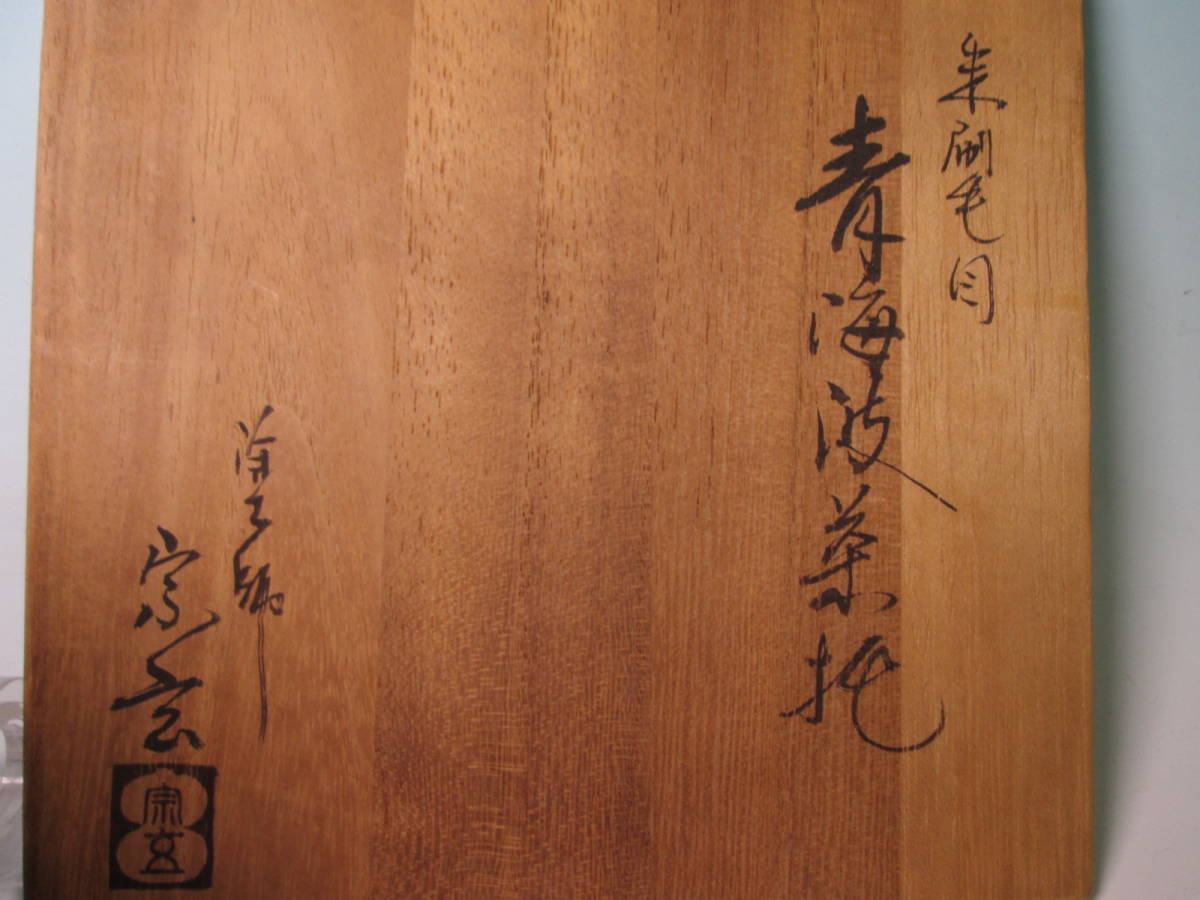 朱刷毛目
青海波茶托
塗師
宗玄
宗玄